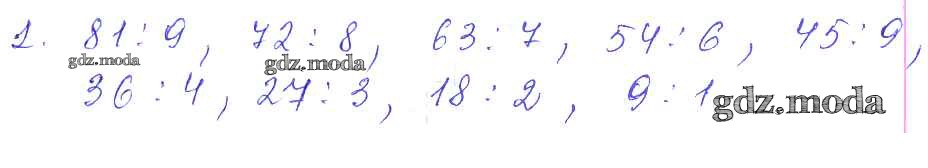 1. 81:9, 72:8, 63:7, 54:6, 45:9,
gdz.moda gdz.moda
36:4, 27:3, 18:2, 9:1
gdz.moda